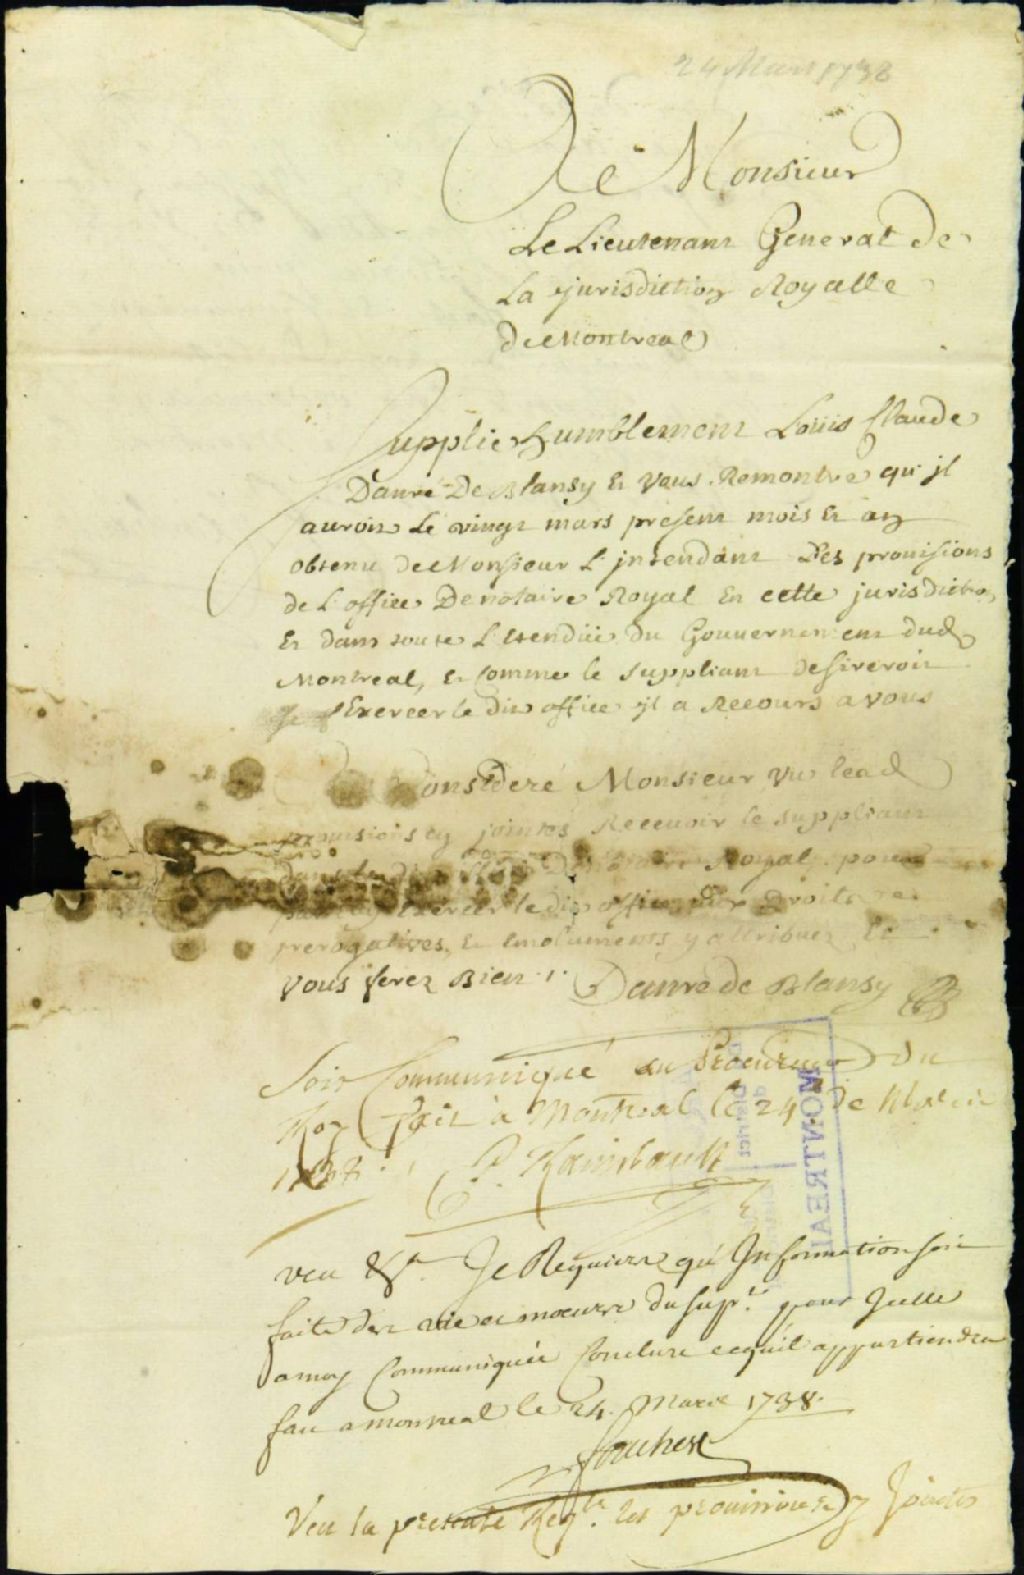 24 Mars 1738
A Monsieur
Le Lieutenant General de
La jurisdiction Royalle
de Montreal
Supplie humblement Loüis Claude
Danré De Blansy Et Vous Remontre qu'jl
auroit Le vingt mars present mois Et an
obtenu de Monsieur L'jntendant Des provisions
de L'office De notaire Royal En cette jurisdiction
Et dans toute L'Etendüe du Gouvernement dud
Montreal, Et Comme le suppliant desireroit
Exercer le dit office jl a Recours a vous
Consideré Monsieur vu lesd
provisions cy jointes Recevoir le suppliant
Royal pour
Exercer le dit office aux Droits
prerogatives, Et Emoluments y attribuez Et
vous ferez Bien ./. Danré de Blansy
Soit Communiqué au Procureur du
Roy fait à Montreal le 24 De Mars
1738 ./. P. Raimbault
MONTREAL
veu &ca. Je Requiere qu'Information soit
faite des vie et moeurs du Supt. pour Icelle
a moy Communiquée Conclure ce qu'il appartiendra
fait a montreal le 24. Mars 1738.
foucher
Veu la presente Reqte. les provisions cy Jointes